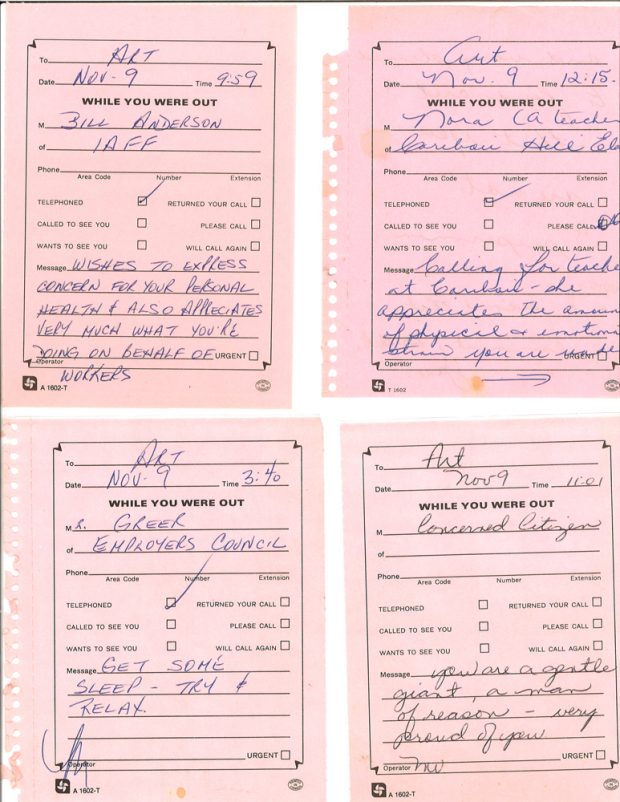 To ART
Date NOV-9 Time 9:59
WHILE YOU WERE OUT
M BILL ANDERSON
of IAFF
Phone
Area Code Number Extension
TELEPHONED RETURNED YOUR CALL
CALLED TO SEE YOU PLEASE CALL
WANTS TO SEE YOU WILL CALL AGAIN
Message WISHES TO EXPRESS
CONCERN FOR YOUR PERSONAL
HEALTH & ALSO APPRECIATES
VERY MUCH WHAT YOU'RE
DOING ON BEHALF OF URGENT
Operator WORKERS
A 1602-T
To Art
Date Nov. 9 Time 12:15.
WHILE YOU WERE OUT
M Nora (A teacher
of Cariboo Hill
Phone
Area Code Number Extension
TELEPHONED RETURNED YOUR CALL
CALLED TO SEE YOU PLEASE CALL
WANTS TO SEE YOU WILL CALL AGAIN
Message Calling for teache
at Cariboo - she
appreciates the amoun
of physical & emotiona
strain you are unde
URGENT
Operator
T 1602
To ART
Date NOV-9 Time 3:40
WHILE YOU WERE OUT
M R. GREER
of EMPLOYERS COUNCIL
Phone
Area Code Number Extension
TELEPHONED RETURNED YOUR CALL
CALLED TO SEE YOU PLEASE CALL
WANTS TO SEE YOU WILL CALL AGAIN
Message GET SOME
SLEEP - TRY &
RELAX.
URGENT
Operator
A 1602-T
To Art
Date Nov 9 Time 11:01
WHILE YOU WERE OUT
M Concerned Citizen
of
Phone
Area Code Number Extension
TELEPHONED RETURNED YOUR CALL
CALLED TO SEE YOU PLEASE CALL
WANTS TO SEE YOU WILL CALL AGAIN
Message you are a gentle
giant, a man
of reason - very
proud of you
URGENT
Operator
A 1602-T